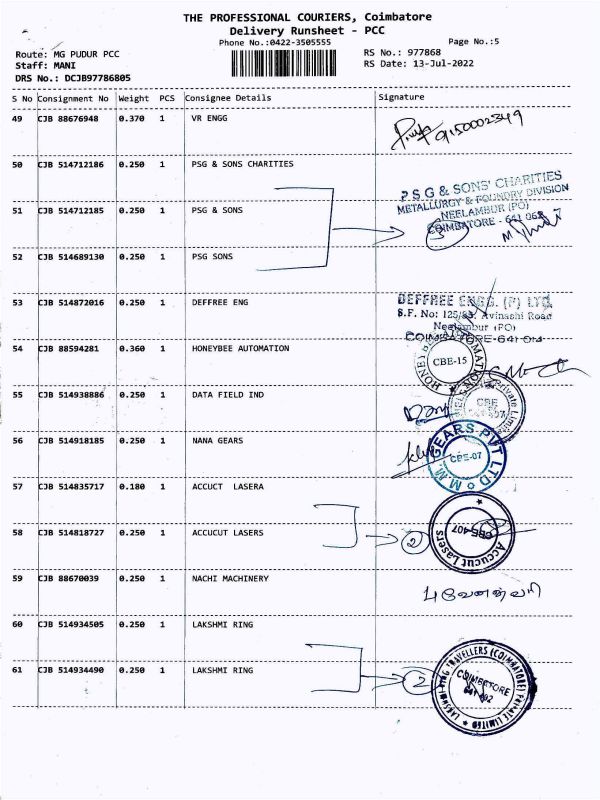 THE PROFESSIONAL COURIERS, Coimbatore
Delivery Runsheet - PCC
Phone No.:0422-3505555
Page No.:5
Route: MG PUDUR PCC
RS No.: 977868
Staff: MANI
RS Date: 13-Jul-2022
DRS No.: DCJB97786805
S No Consignment No Weight PCS Consignee Details Signature
49 CJB 88676948 0.370 1 VR ENGG
9150002349
50 CJB 514712186 0.250 1 PSG & SONS CHARITIES
PSG & SONS' CHARITIES
METALLURGY & FOUNDRY DIVISION
NEELAMBUR (PO)
COIMBATORE - 641 062
51 CJB 514712185 0.250 1 PSG & SONS
3
52 CJB 514689130 0.250 1 PSG SONS
53 CJB 514872016 0.250 1 DEFFREE ENG
DEFFREE ENGG. (P) LTD.
S.F. No: 125/ Avinashi Road
Neelambur (PO)
COIMBATORE-641 014
54 CJB 88594281 0.360 1 HONEYBEE AUTOMATION
CBE-15
55 CJB 514938886 0.250 1 DATA FIELD IND
Private Limited
CBE
56 CJB 514918185 0.250 1 NANA GEARS
M.M. GEARS PVT LTD
CBE-07
57 CJB 514835717 0.180 1 ACCUCT LASERA
58 CJB 514818727 0.250 1 ACCUCUT LASERS
2
Accucut Lasers
CBE-407
59 CJB 88670039 0.250 1 NACHI MACHINERY
60 CJB 514934505 0.250 1 LAKSHMI RING
61 CJB 514934490 0.250 1 LAKSHMI RING
2
LAKSHMI RING TRAVELLERS (COIMBATORE) PRIVATE LIMITED
COIMBATORE
641 402